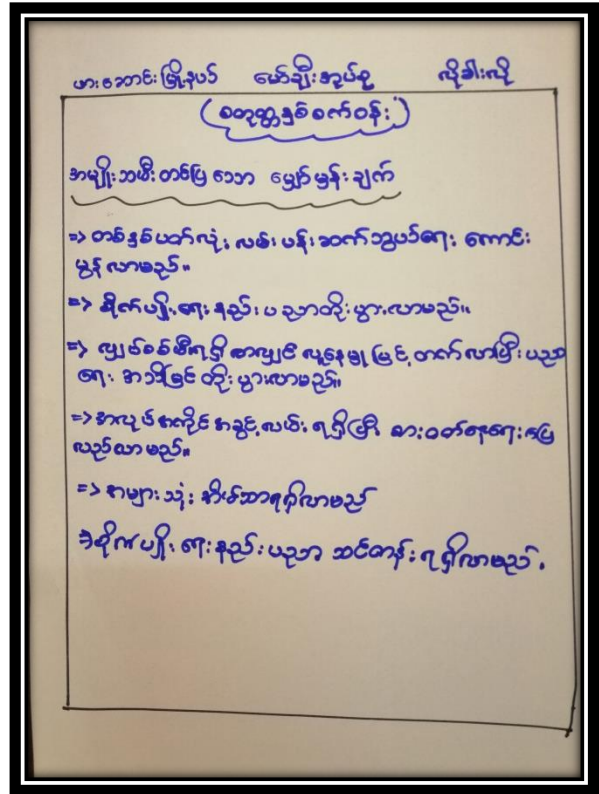 ဖားဆောင်းမြို့နယ် မော်ချီးအုပ်စု လိုခါးလို
(စတုတ္ထနှစ်စက်ဝန်း)
အမျိုးသမီးတစ်ပြသော မျှော်မှန်းချက်
=> တစ်နှစ်ပတ်လုံး လမ်းပန်းဆက်သွယ်ရေး ကောင်း
မွန်လာမည်။
=> စိုက်ပျိုးရေးနည်းပညာတိုးပွားလာမည်။
=> လျှပ်စစ်မီးရရှိလာလျှင် လူနေမှုမြင့်တက်လာပြီးပညာ
ရေး အသိမြင်တိုးပွားလာမည်။
=> အလုပ်အကိုင်အခွင့်လမ်းရရှိပြီး စားဝတ်နေရေးပြေ
လည်လာမည်။
=> အများသုံး အိမ်သာရရှိလာမည်
=> စိုက်ပျိုးရေးနည်းပညာ သင်တန်းရရှိလာမည်.